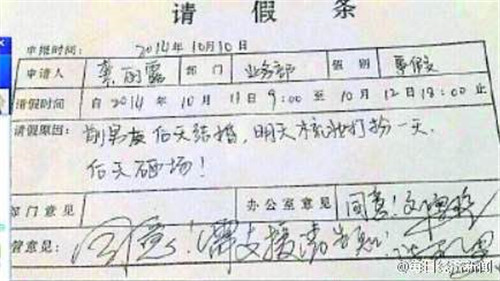 请假条
申报时间: 2014年10月10日
申请人 龚丽露 部门 业务部 假别 事假
请假时间 自2014年10月11日9:00至10月12日18:00止
请假原因: 前男友后天结婚,明天梳妆打扮一天.
后天砸场!
部门意见 办公室意见 同意!
管意见: 同意!需支援请告知!
@每日经济新闻